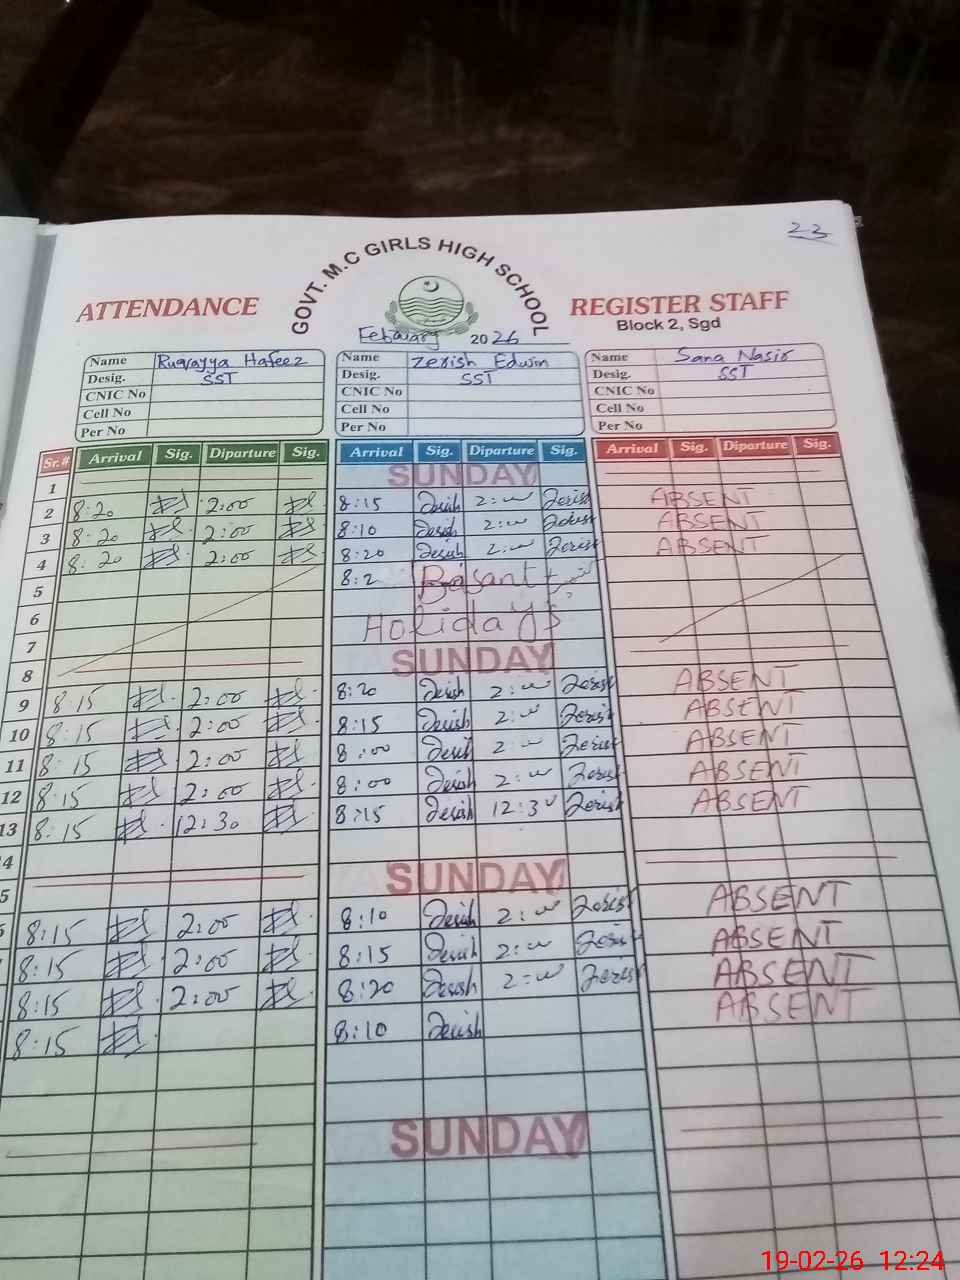 23
GOVT. M.C GIRLS HIGH SCHOOL
ATTENDANCE REGISTER STAFF
Block 2, Sgd
February 2026
Name Ruqayya Hafeez Name Zerish Edwin Name Sana Nasir
Desig. SST Desig. SST Desig. SST
CNIC No CNIC No CNIC No
Cell No Cell No Cell No
Per No Per No Per No
Sr.# Arrival Sig. Diparture Sig. Arrival Sig. Diparture Sig. Arrival Sig. Diparture Sig.
1 SUNDAY
2 8:20 2:00 8:15 Zerish 2:00 Zerish ABSENT
3 8:20 2:00 8:10 Zerish 2:00 Zerish ABSENT
4 8:20 2:00 8:20 Zerish 2:00 Zerish ABSENT
5 8:2 Basant
6 Holidays
7
8 SUNDAY
9 8:15 2:00 8:20 Zerish 2:00 Zerish ABSENT
10 8:15 2:00 8:15 Zerish 2:00 Zerish ABSENT
11 8:15 2:00 8:00 Zerish 2:00 Zerish ABSENT
12 8:15 2:00 8:00 Zerish 2:00 Zerish ABSENT
13 8:15 12:30 8:15 Zerish 12:30 Zerish ABSENT
4
5 SUNDAY
6 8:15 2:00 8:10 Zerish 2:00 Zerish ABSENT
8:15 2:00 8:15 Zerish 2:00 Zerish ABSENT
8:15 2:00 8:20 Zerish 2:00 Zerish ABSENT
8:15 8:10 Zerish ABSENT
SUNDAY
19-02-26 12:24